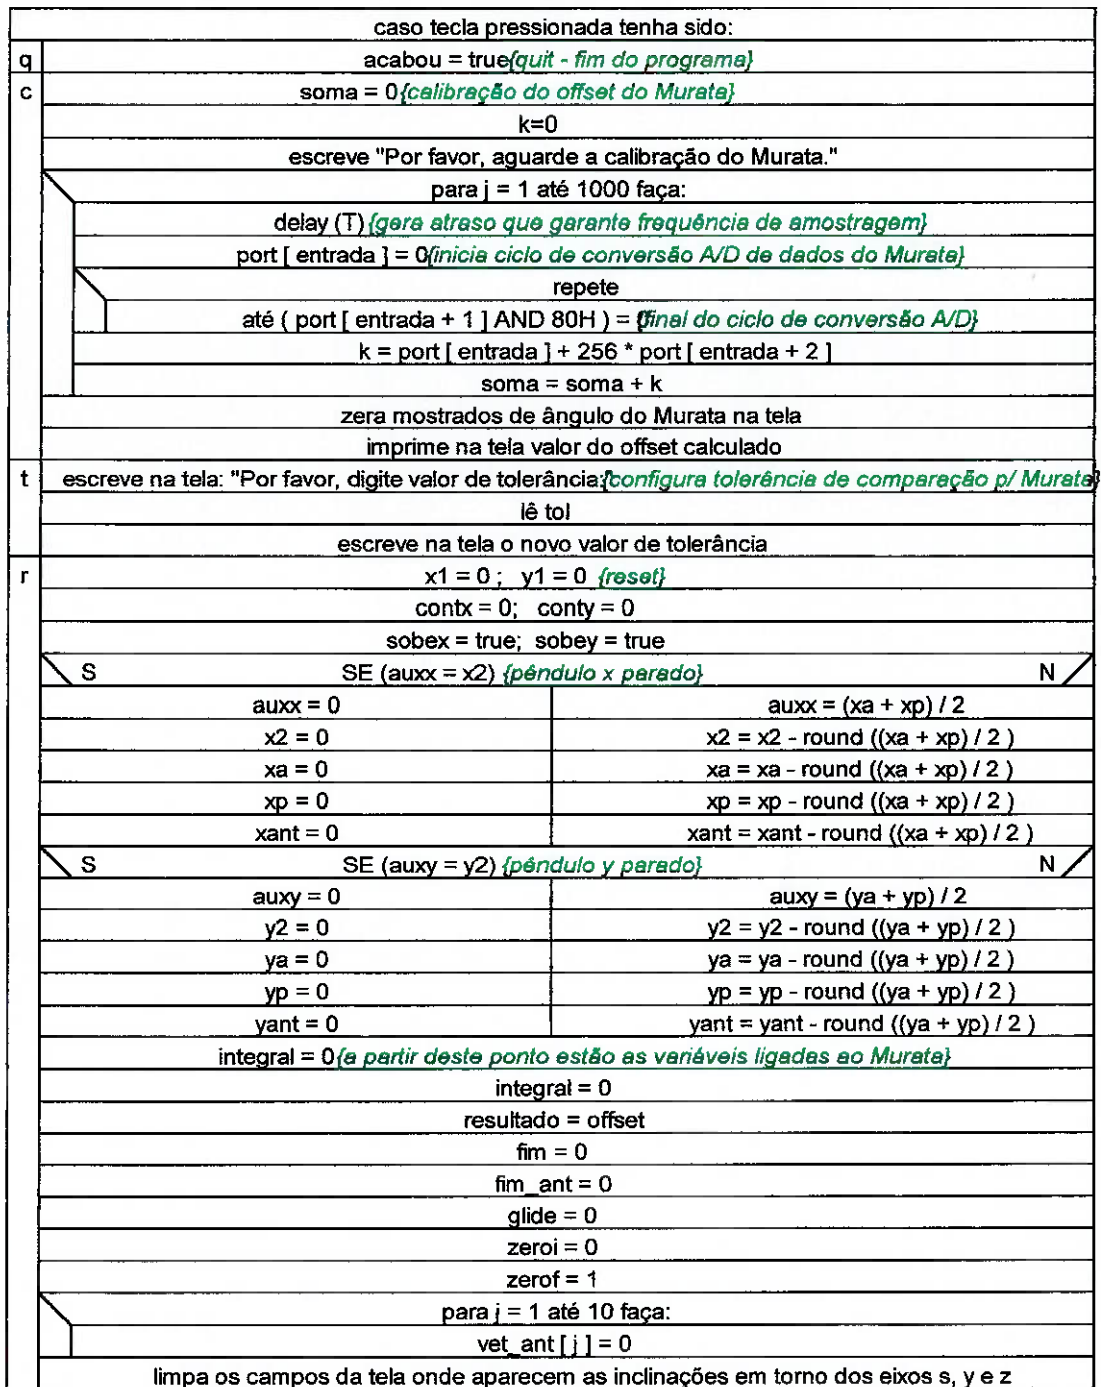 caso tecla pressionada tenha sido:
q acabou = true{quit - fim do programa}
c soma = 0{calibração do offset do Murata}
k=0
escreve "Por favor, aguarde a calibração do Murata."
para j = 1 até 1000 faça:
delay (T) {gera atraso que garante frequência de amostragem}
port [ entrada ] = 0{inicia ciclo de conversão A/D de dados do Murata}
repete
até ( port [ entrada + 1 ] AND 80H ) = {final do ciclo de conversão A/D}
k = port [ entrada ] + 256 * port [ entrada + 2 ]
soma = soma + k
zera mostrados de ângulo do Murata na tela
imprime na tela valor do offset calculado
t escreve na tela: "Por favor, digite valor de tolerância:{configura tolerância de comparação p/ Murata}
lê tol
escreve na tela o novo valor de tolerância
r x1 = 0 ; y1 = 0 {reset}
contx = 0; conty = 0
sobex = true; sobey = true
S SE (auxx = x2) {pêndulo x parado} N
auxx = 0 auxx = (xa + xp) / 2
x2 = 0 x2 = x2 - round ((xa + xp) / 2 )
xa = 0 xa = xa - round ((xa + xp) / 2 )
xp = 0 xp = xp - round ((xa + xp) / 2 )
xant = 0 xant = xant - round ((xa + xp) / 2 )
S SE (auxy = y2) {pêndulo y parado} N
auxy = 0 auxy = (ya + yp) / 2
y2 = 0 y2 = y2 - round ((ya + yp) / 2 )
ya = 0 ya = ya - round ((ya + yp) / 2 )
yp = 0 yp = yp - round ((ya + yp) / 2 )
yant = 0 yant = yant - round ((ya + yp) / 2 )
integral = 0{a partir deste ponto estão as variáveis ligadas ao Murata}
integral = 0
resultado = offset
fim = 0
fim_ant = 0
glide = 0
zeroi = 0
zerof = 1
para j = 1 até 10 faça:
vet_ant [ j ] = 0
limpa os campos da tela onde aparecem as inclinações em torno dos eixos s, y e z